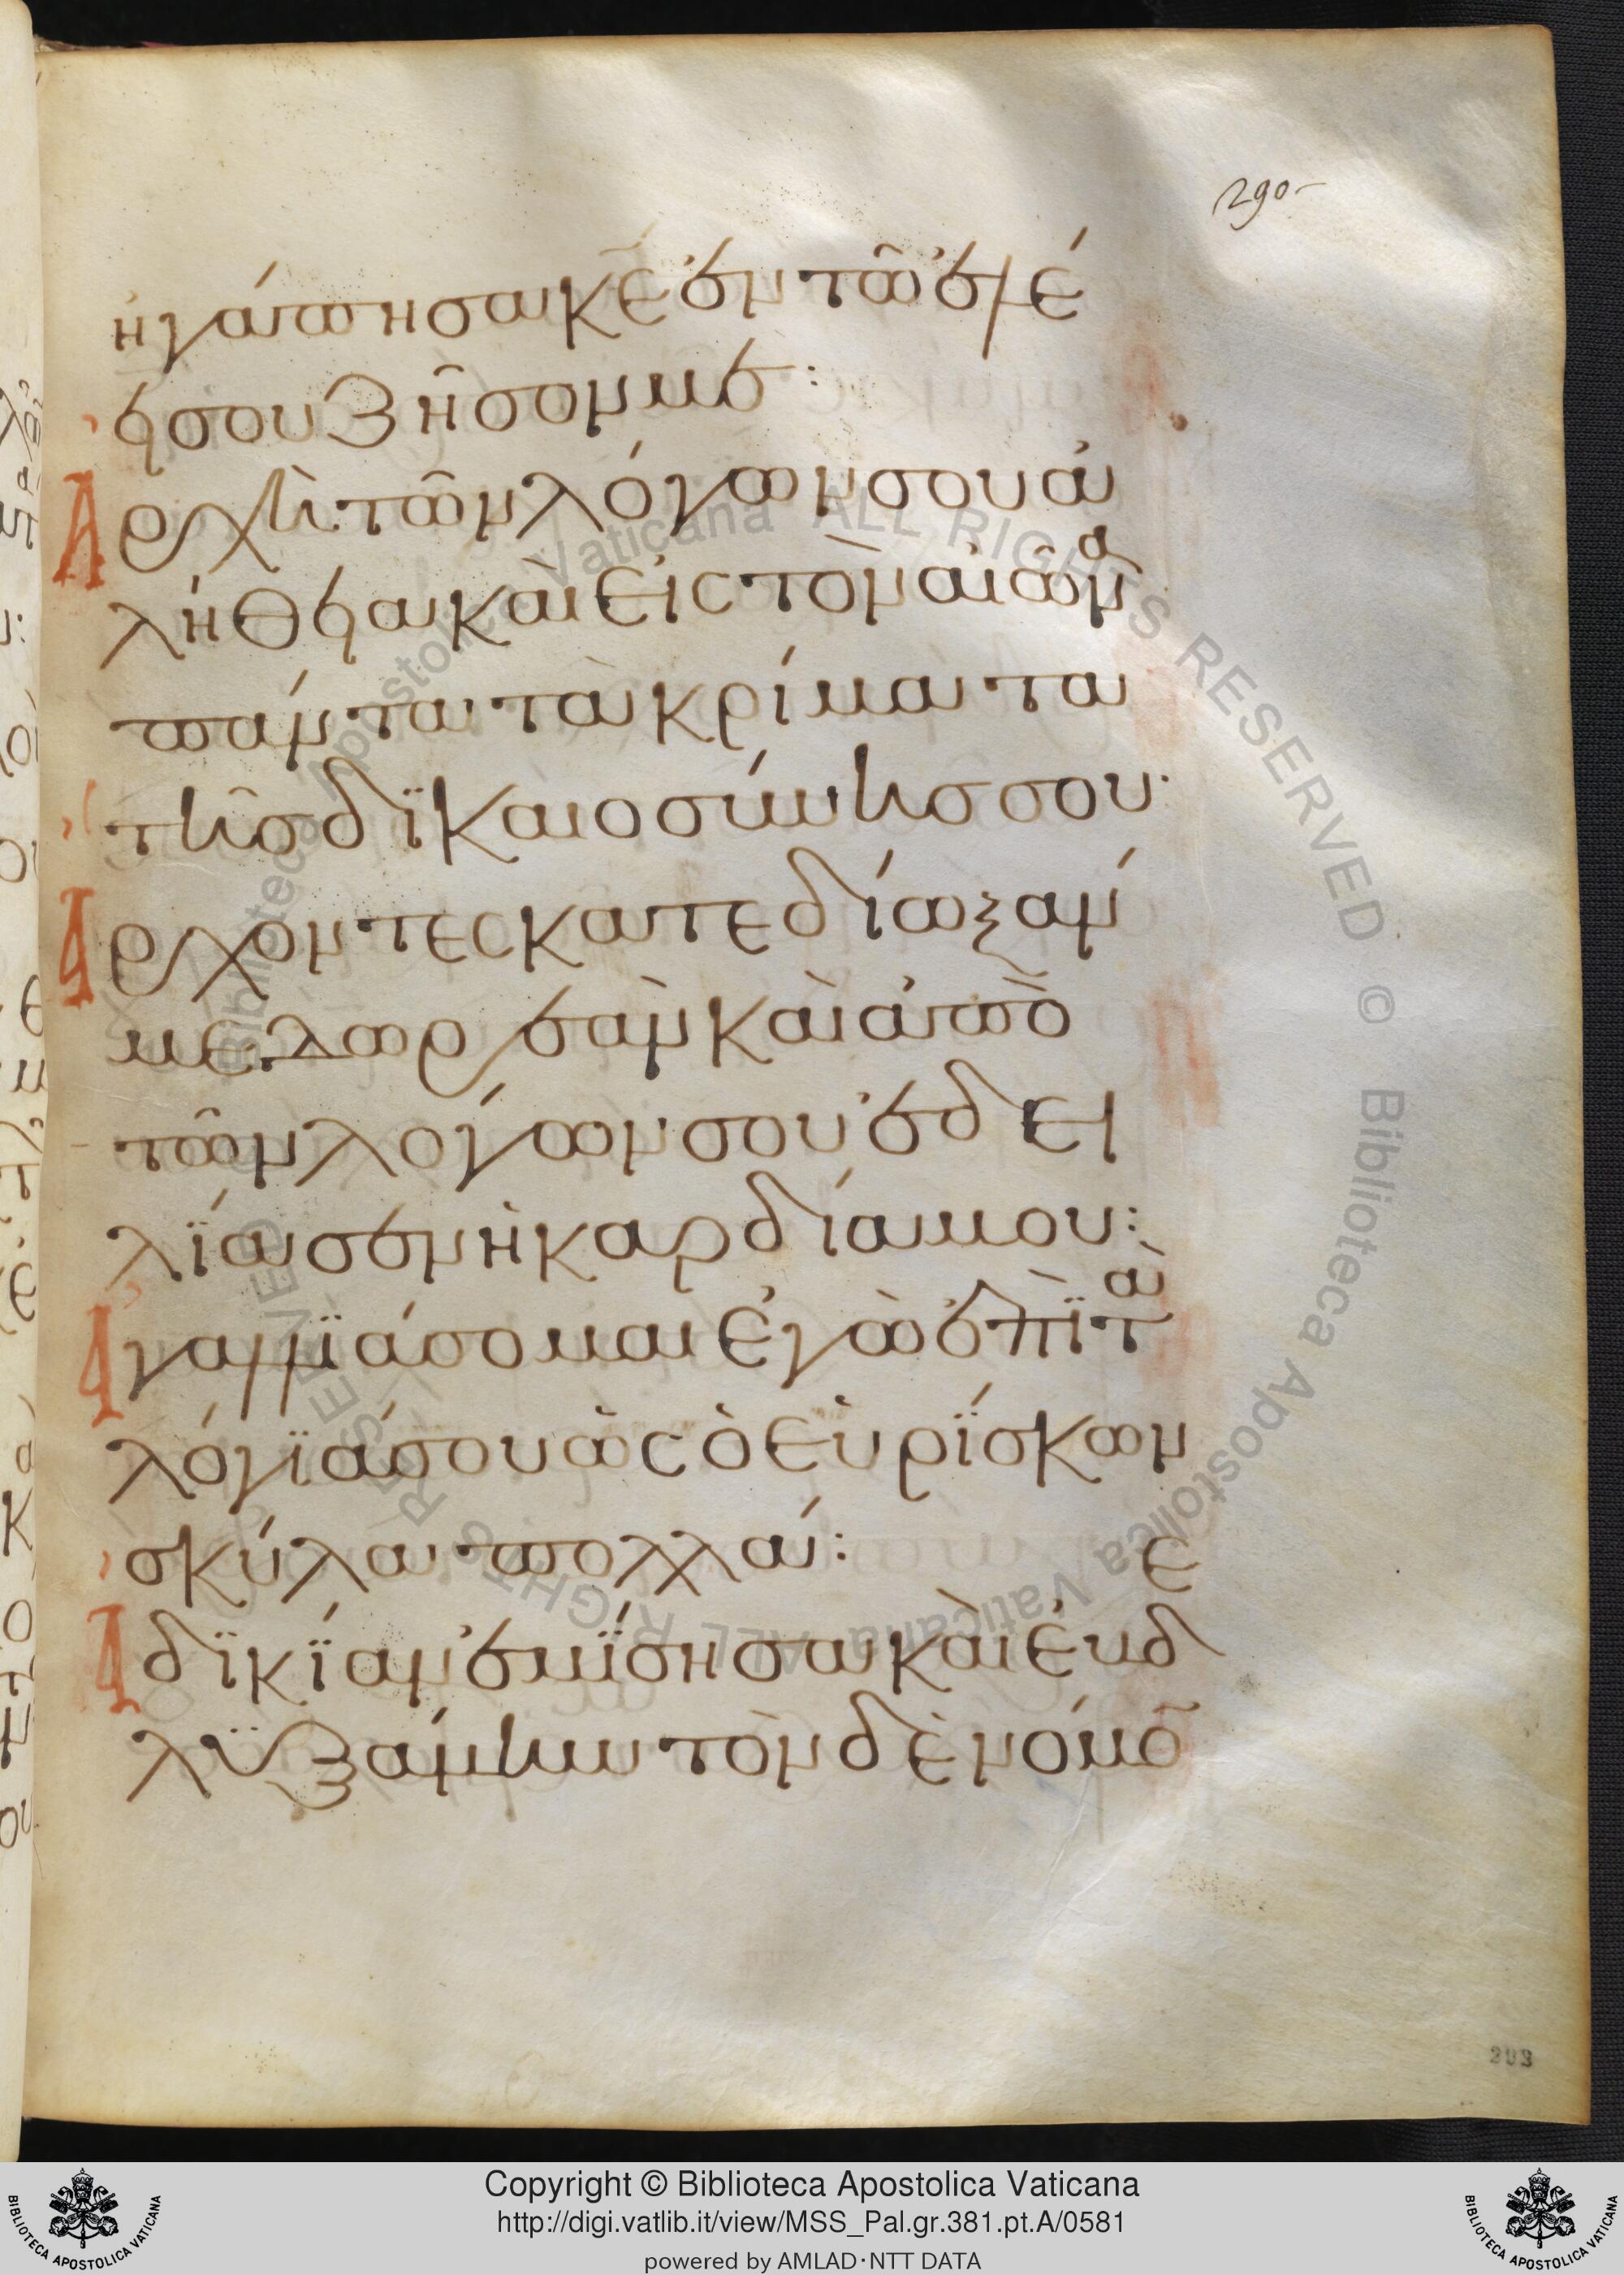 290
ἠγάπησα κε ἐν τῶ ἐλέ
ει σου ζῆσόμ με:
Ἀρχὴ τῶν λόγων σου ἀ
λήθεια καὶ εἰς τὸν αἰῶνα
πάντα τὰ κρίματα
τῆς δϊκαιοσύνης σου·
Ἄρχοντες κατεδίωξάν
με δωρεὰν καὶ ἀπὸ
τῶν λογων σου ἐδει
λΐασεν ἡ καρδία μου:
Ἀγαλλϊάσομαι ἐγὼ ἐπῒ τὰ
λόγϊά σου ὡς ὁ εὑρΐσκων
σκῦλα πολλά:
Ἀδϊκΐαν ἐμΐσησα καὶ ἐβδε
λϋξάμην τὸν δὲ νόμο
203
Copyright © Biblioteca Apostolica Vaticana
http://digi.vatlib.it/view/MSS_Pal.gr.381.pt.A/0581
powered by AMLAD·NTT DATA
BIBLIOTECA APOSTOLICA VATICANA
BIBLIOTECA APOSTOLICA VATICANA
Biblioteca Apostolica Vaticana ALL RIGHTS RESERVED © Biblioteca Apostolica Vaticana ALL RIGHTS RESERVED ©